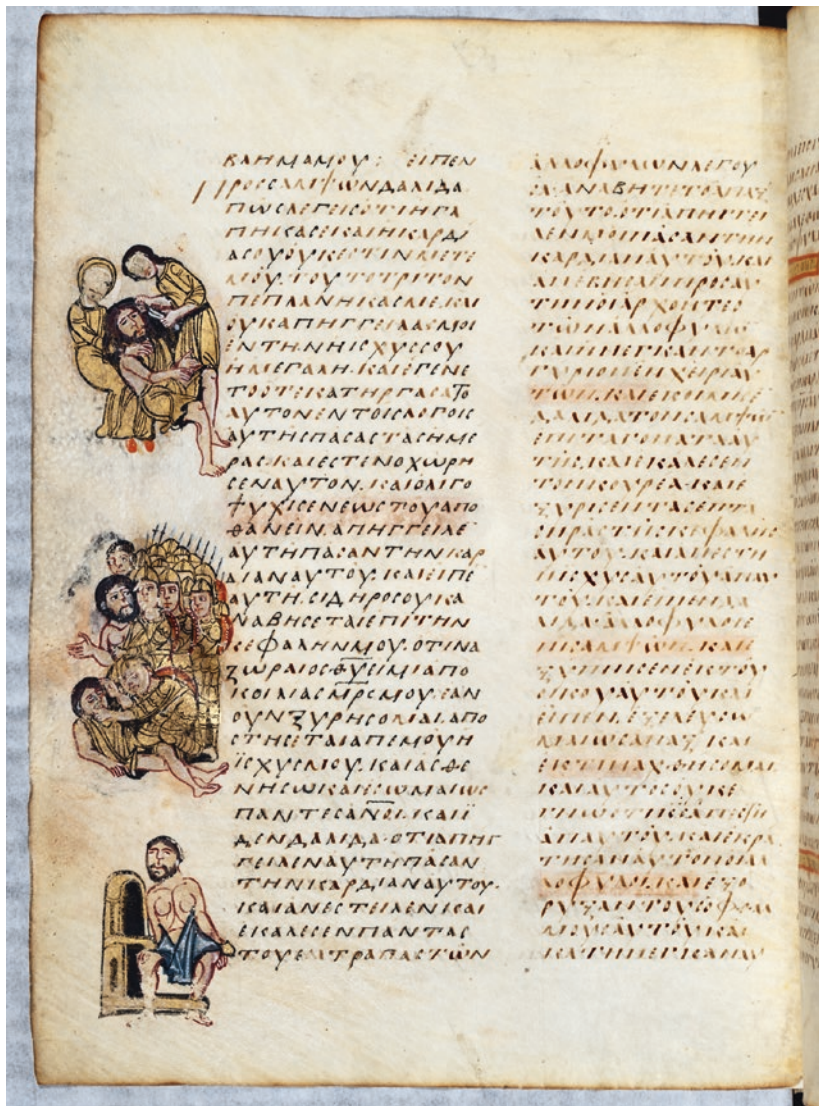 ΒΛΗΜΑΜΟΥ: ΕΙΠΕΝ
ΠΡΟϹϹΑΜΨΩΝΔΑΛΙΔΑ
ΠΩϹΛΕΓΕΙϹΟΤΙΗΓΑ
ΠΗΚΑϹΕΚΑΙΗΚΑΡΔΙ
ΑϹΟΥΟΥΚΕϹΤΙΝΜΕΤΕ
ΜΟΥ.ΤΟΥΤΟΤΡΙΤΟΝ
ΠΕΠΛΑΝΗΚΑϹΜΕ.ΚΑΙ
ΟΥΚΑΠΗΓΓΕΙΛΑϹΜΟΙ
ΕΝΤΗΝΗΙϹΧΥϹϹΟΥ
ΗΜΕΓΑΛΗ.ΚΑΙΕΓΕΝΕ
ΤΟΟΤΕΚΑΤΗΡΓΑϹΑΤΟ
ΑΥΤΟΝΕΝΤΟΙϹΛΟΓΟΙϹ
ΑΥΤΗϹΠΑϹΑϹΤΑϹΗΜΕ
ΡΑϹ.ΚΑΙΕϹΤΕΝΟΧΩΡΗ
ϹΕΝΑΥΤΟΝ.ΚΑΙΟΛΙΓΟ
ΨΥΧΙϹΕΝΕΩϹΤΟΥΑΠΟ
ΘΑΝΕΙΝ.ΑΠΗΓΓΕΙΛΕ
ΑΥΤΗΠΑϹΑΝΤΗΝΚΑΡ
ΔΙΑΝΑΥΤΟΥ.ΚΑΙΕΙΠΕ
ΑΥΤΗ.ϹΙΔΗΡΟϹΟΥΚΑ
ΝΑΒΗϹΕΤΑΙΕΠΙΤΗΝ
ΚΕΦΑΛΗΝΜΟΥ.ΟΤΙΝΑ
ΖΩΡΑΙΟϹΘΥΕΙΜΙΑΠΟ
ΚΟΙΛΙΑϹΜΡϹΜΟΥ.ΕΑΝ
ΟΥΝΞΥΡΗϹΟΜΑΙ.ΑΠΟ
ϹΤΗϹΕΤΑΙΑΠΕΜΟΥΗ
ΪϹΧΥϹΜΟΥ.ΚΑΙΑϹΘΕ
ΝΗϹΩΚΑΙΕϹΩΜΑΙΩϹ
ΠΑΝΤΕϹΑΝΟΙ.ΚΑΙΪ
ΔΕΝΔΑΛΙΔΑ.ΟΤΙΑΠΗΓ
ΓΕΙΛΕΝΑΥΤΗΠΑϹΑΝ
ΤΗΝΚΑΡΔΙΑΝΑΥΤΟΥ.
ΚΑΙΑΝΕϹΤΕΙΛΕΝΚΑΙ
ΕΚΑΛΕϹΕΝΠΑΝΤΑϹ
ΤΟΥϹϹΑΤΡΑΠΑϹΤΩΝ
ΑΛΛΟΦΥΛΩΝΛΕΓΟΥ
ϹΑ.ΑΝΑΒΗΤΕΤΟΑΠΑΞ
ΤΟΥΤΟ.ΟΤΙΑΠΗΓΓΕΙ
ΛΕΝΜΟΙΠΑϹΑΝΤΗΝ
ΚΑΡΔΙΑΝΑΥΤΟΥ.ΚΑΙ
ΑΝΕΒΗϹΑΝΠΡΟϹΑΥ
ΤΗΝΟΙΑΡΧΟΝΤΕϹ
ΤΩΝΑΛΛΟΦΥΛΩ
ΚΑΙΗΝΕΓΚΑΝΤΟΑΡ
ΓΥΡΙΟΝΕΝΧΕΙΡΙΑΥ
ΤΩΝ.ΚΑΙΕΚΟΙΜΙϹΕ
ΔΑΛΙΔΑΤΟΝϹΑΜΨΩ
ΕΠΙΤΑΓΟΝΑΤΑΑΥ
ΤΗϹ.ΚΑΙΕΚΑΛΕϹΕΝ
ΤΟΝΚΟΥΡΕΑ.ΚΑΙΕ
ΞΥΡΙϹΕΝΤΑϹΕΠΤΑ
ϹΕΙΡΑϹΤΗϹΚΕΦΑΛΗϹ
ΑΥΤΟΥ.ΚΑΙΑΠΕϹΤΗ
ΗΙϹΧΥϹΑΥΤΟΥΑΠΑΥ
ΤΟΥ.ΚΑΙΕΙΠΕΝΔΑ
ΛΙΔΑ.ΑΛΛΟΦΥΛΟΙΕ
ΠΙϹΕϹΑΜΨΩΝ.ΚΑΙΕ
ΞΥΠΝΙϹΕΝΕΚΤΟΥ
ΥΠΝΟΥΑΥΤΟΥΚΑΙ
ΕΙΠΕΝ.ΕΞΕΛΕΥϹΟ
ΜΑΙΩϹΑΠΑΞ ΚΑΙ
ΕΚΤΙΝΑΧΘΗϹΟΜΑΙ
ΚΑΙΑΥΤΟϹΟΥΚΕ
ΓΝΩΟΤΙΚϹΑΠΕϹΤΗ
ΑΠΑΥΤΟΥ.ΚΑΙΕΚΡΑ
ΤΗϹΑΝΑΥΤΟΝΟΙΑΛ
ΛΟΦΥΛΟΙ.ΚΑΙΕΞΟ
ΡΥΞΑΝΤΟΥϹΟΦΘΑΛ
ΜΟΥϹΑΥΤΟΥ.ΚΑΙ
ΚΑΤΗΝΕΓΚΑΝΑΥ